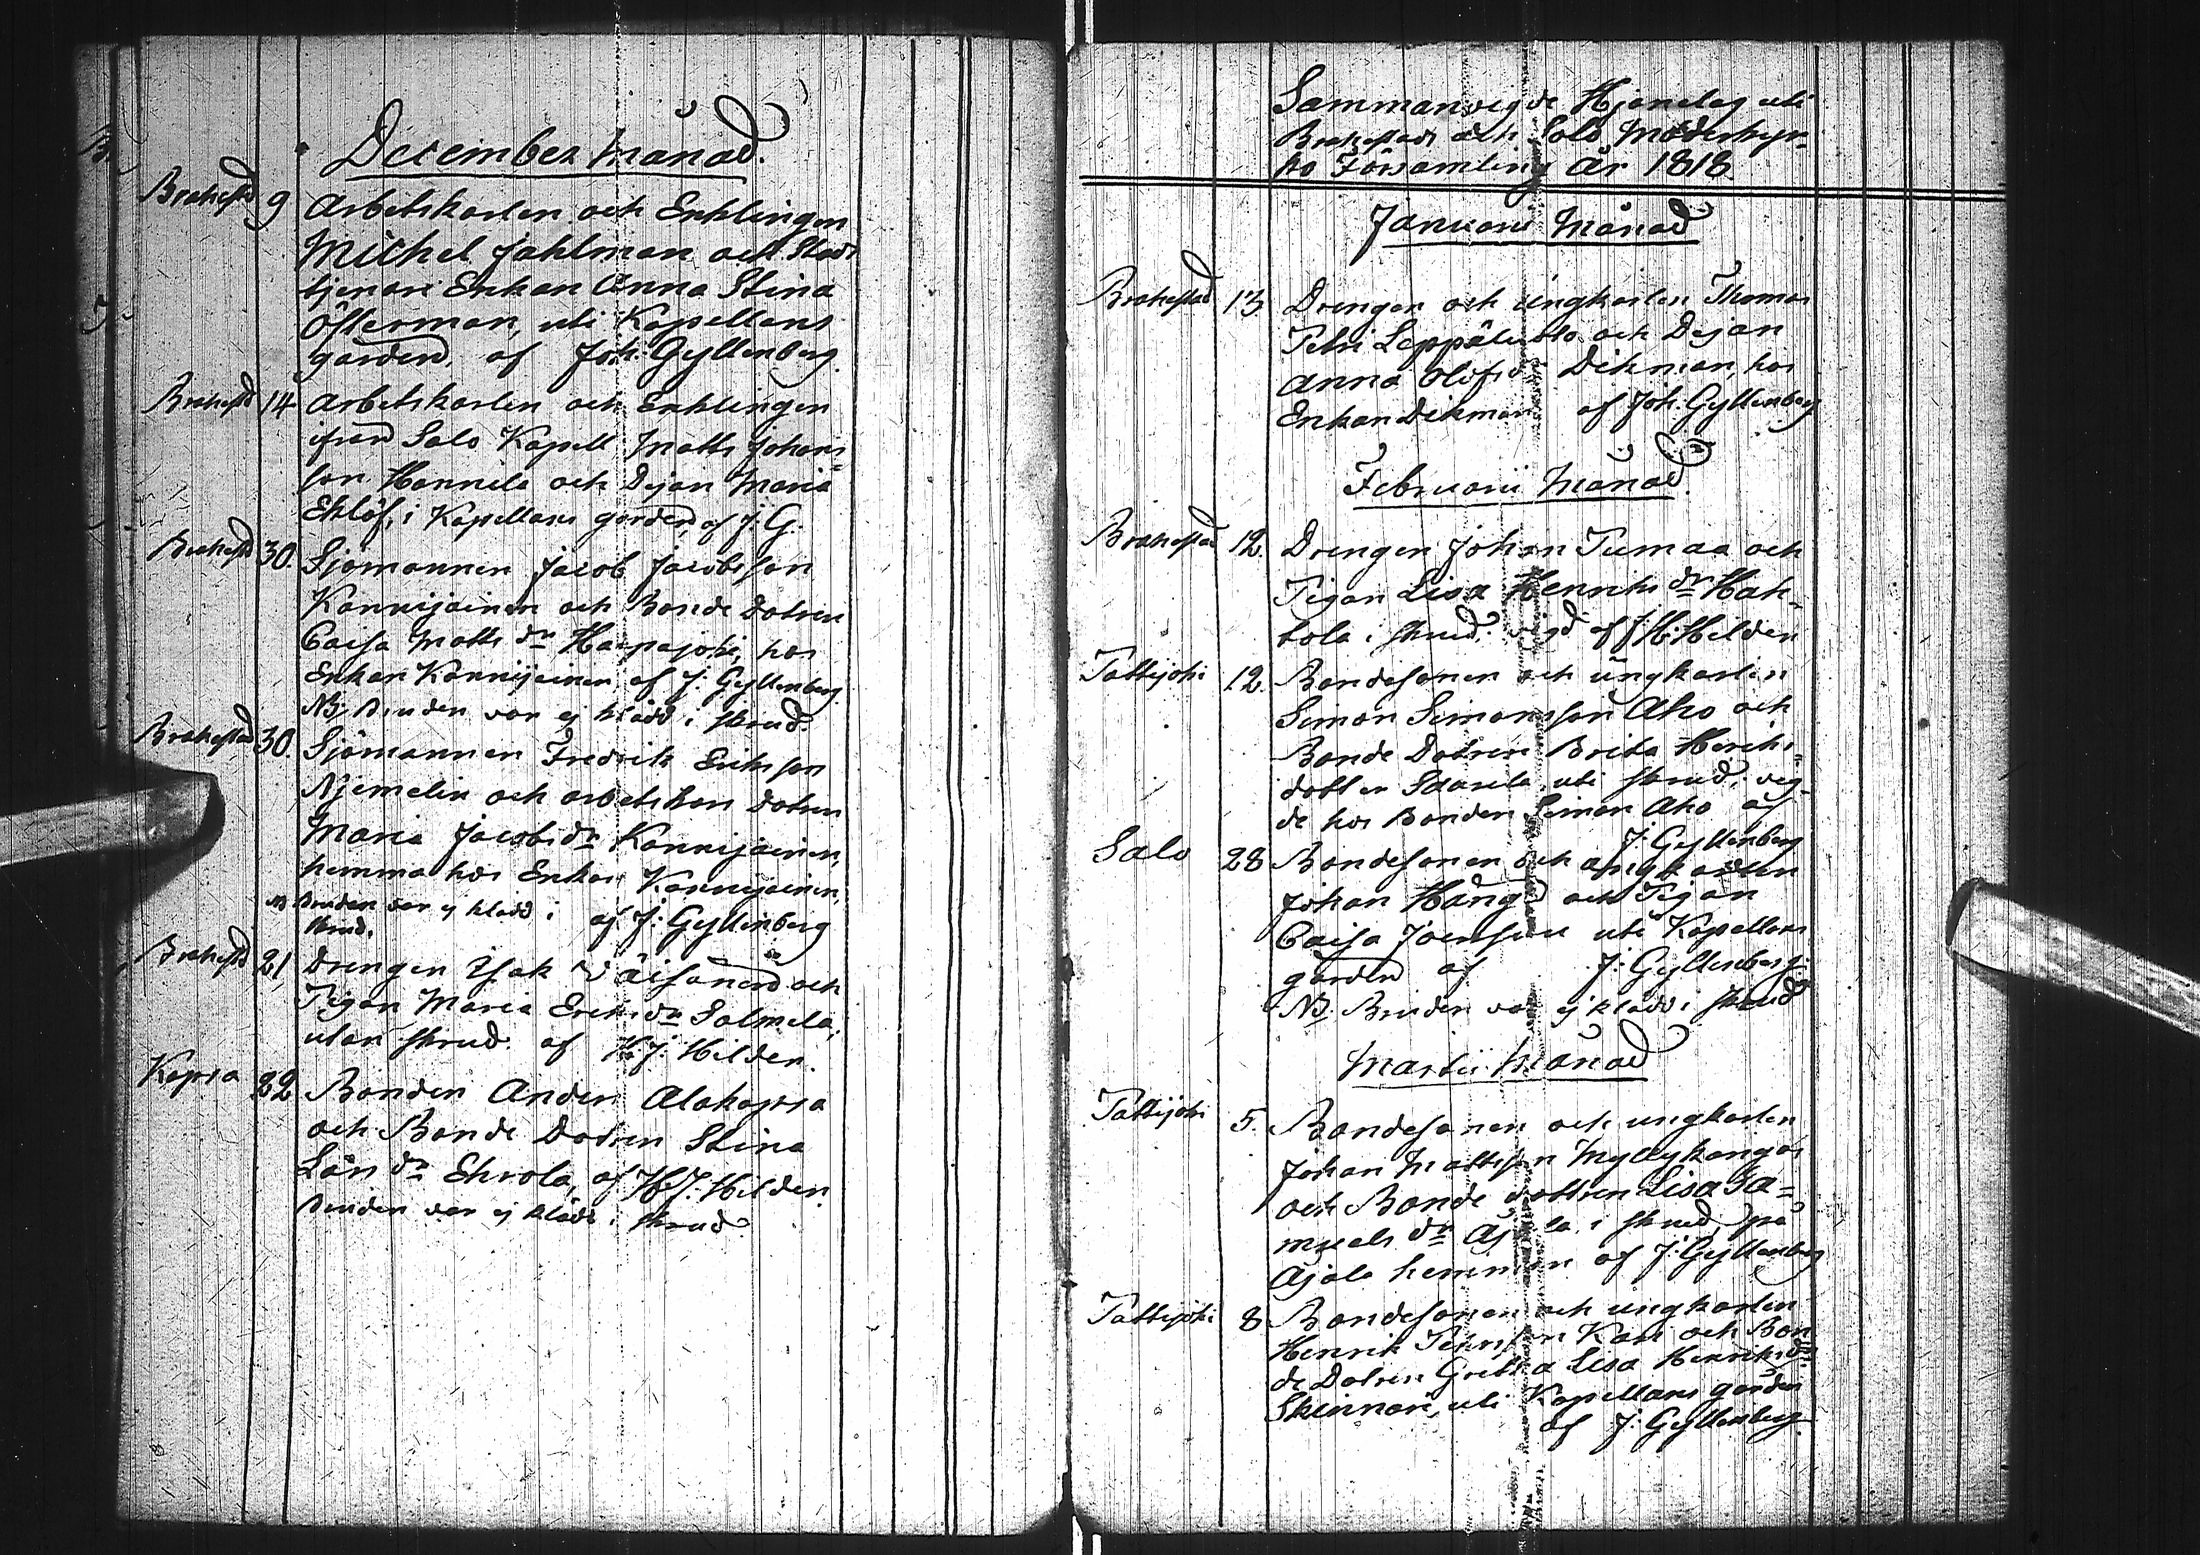 December Månad.
Brahestd 9 Arbetskarlen och Enklingen
Michel Jahlman och Stads
tjenare Enkan Anna Stina
Österman, uti Kapellans
gården, af Joh: Gyllenberg.
Brahestd 14 Arbetskarlen och Enklingen
ifrån Salo Kapell Matts Johans=
son Hannila och Pigan Maria
Eklöf, i Kapellans gården, af J: G:
Brahestd 30. Sjömannen Jacob Jacobsson
Kannijainen och Bonde Dotren
Caisa Matts dr Haapajoki, hos
Enkan Kannijainen, af J: Gyllenberg
NB. Bruden var ej klädd i skrud.
Brahestad 30. Sjömannen Fredrik Eriksson
Njemelin och arbetskars Dotren
Maria Jacobs dr Kannijainen,
hemma hos Enkan Kannijainen,
NB Bruden var ej klädd i af J: Gyllenberg
skrud.
Brahestd 21, Drengen Isak Väisänen och
Pigan Maria Eriks dr Salmela,
utan skrud. af H. J: Hilden.
Kopsa 22 Bonden Anders Alakopsa
och Bonde Dotren Stina
Lars dr Ekrola, af H. J: Hilden
Bruden var ej klädd i skrud.
Sammanvigde Hjonelag uti
Brahestads och Salo Moderkyr-
ko Församling År 1818.
Januarii Månad
Brahestad 13 Drengen och ungkarlen Thomas
Petri Leppäluoto och Pigan
Anna Olofsdr Dikman, hos
Enkan Dikman af Joh. Gyllenberg
Februarii Månad.
Brahestad 12. Drengen Johan Tumaa och
Pigan Lisa Henriks dr Hak-
tola i skrud. vigd af J: H: Helden
Pattijoki 12. Bondesonen och ungkarlen
Simon Simonsson Aho och
Bonde Dotren Brita Henriks=
dotter Saarela, uti skrud, vig-
de hos Bonden Simon Aho af
J: Gyllenberg
Salo 28 Bondesonen och ungkarlen
Johan Hång och Pigan
Caisa Joensuu uti Kapellans
gården af J: Gyllenberg:
NB. Bruden var ej klädd i skrud
Martii Månad
Pattijoki 5. Bondesonen och ungkarlen
Johan Mattsson Myllykangas
och Bonde dottren Lisa Sa=
muels dr Ajala, i skrud, på
Ajala hemman af J: Gyllenberg
Pattijoki 8 Bondesonen och ungkarlen
Henrik Kari och Bon
de Dotren Greta Lisa Henriksdr
Skinnari, uti Kapellans gården
af J: Gyllenberg.